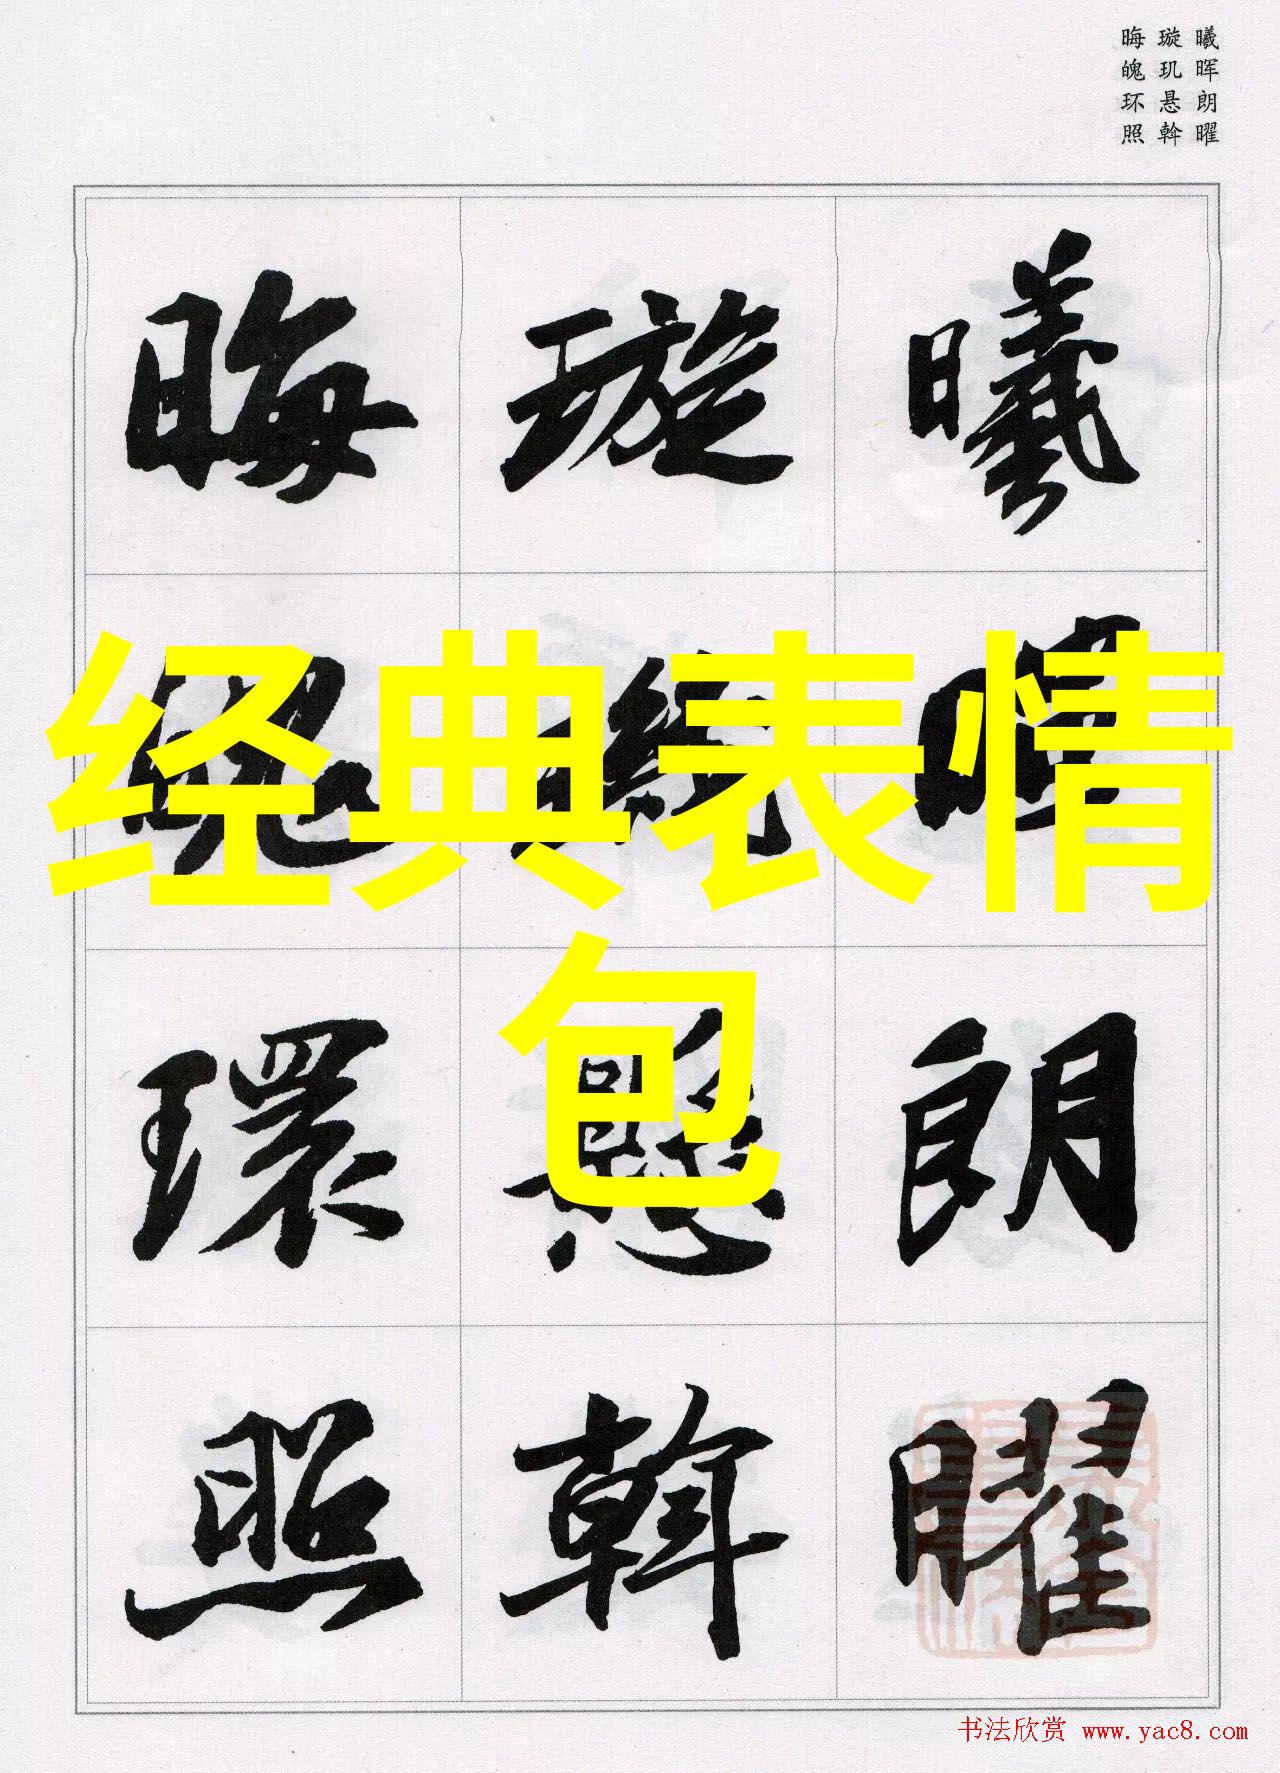 曦晖朗曜
璇玑悬斡
晦魄环照
曦
朗曜
璇
懸斡
晦魄環照
经典表情
包
书法欣赏 www.yac8.com